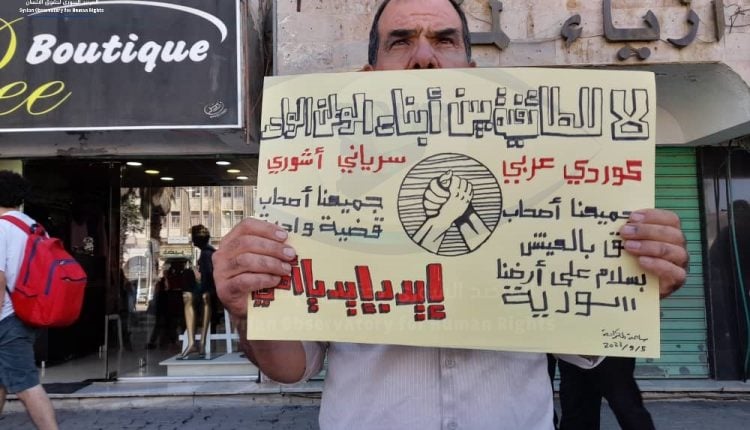 المرصد السوري لحقوق الانسان
Syrian Observatory for Human Rights
Boutique
ee
أزياء
لا للطائفية بين أبناء الوطن الواحد
كوردي عربي
سرياني أشوري
جميعنا أصحاب
حق بالعيش
بسلام على أرضنا
السورية
جميعنا أصحاب
قضية واحدة
إيد بإيد يا أخي
2023/9/5
Syrian Observatory for Human Rights